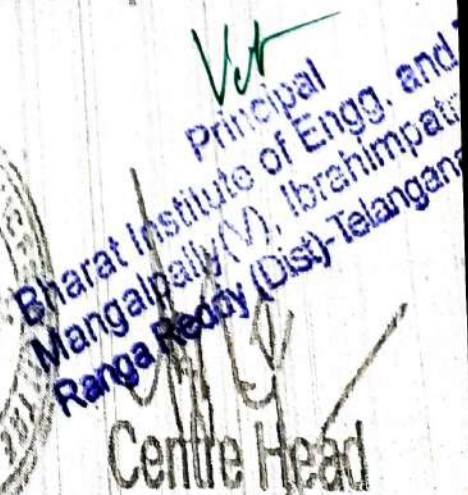 Principal
Bharat Institute of Engg. and
Mangalpally(V), Ibrahimpat
Ranga Reddy (Dist)-Telangana
Centre Head